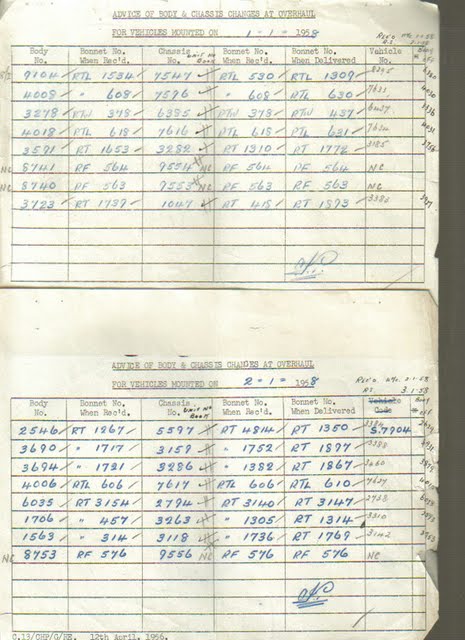 ADVICE OF BODY & CHASSIS CHANGES AT OVERHAUL
FOR VEHICLES MOUNTED ON 1 - 1 - 1958
Body No. Bonnet No. When Rec'd. Chassis No. Unit No Book Bonnet No. When Delivered Vehicle No.
9104 RTL 1534 7547 RTL 530 RTL 1309
4008 " 608 7596 " 608 RTL 630 7631
3278 RTW 378 6385 RTW 378 RTW 437 6437
4018 RTL 618 7616 RTL 618 RTL 631 7624
3591 RT 1653 3282 RT 1310 RT 1772 3185
NC 8741 RF 564 9554 NC RF 564 RF 564 NC
NC 8740 RF 563 9553 NC RF 563 RF 563 NC
3723 RT 1739 1047 RT 418 RT 1893 3386
ADVICE OF BODY & CHASSIS CHANGES AT OVERHAUL
FOR VEHICLES MOUNTED ON 2 - 1 - 1958
3.1.58
Body No. Bonnet No. When Rec'd. Chassis No. Unit No Book Bonnet No. When Delivered Vehicle Code
2546 RT 1267 5597 RT 4814 RT 1350 S.7904
3690 " 1717 3159 " 1752 RT 1897 3388
3694 " 1721 3286 " 1382 RT 1867 3460
4006 RTL 606 7617 RTL 606 RTL 610 7637
6035 RT 3154 2794 RT 3140 RT 3147 2758
1706 " 457 3263 " 1305 RT 1314 3310
1563 " 314 3118 " 1736 RT 1769 3142
NC 8753 RF 576 9556 NC RF 576 RF 576 NC
C.13/CHP/G/HE. 12th April, 1956.